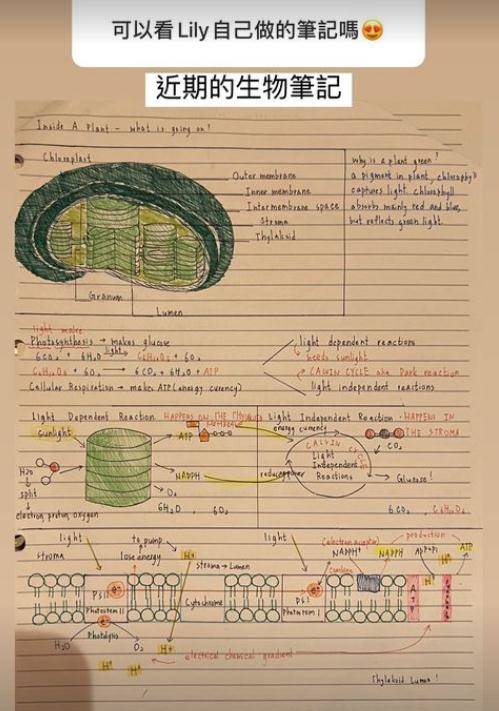 可以看 Lily 自己做的筆記嗎😍
近期的生物筆記
Inside A Plant - what is going on!
Chloroplast
Outer membrane
Inner membrane
Intermembrane space
Stroma
Thylakoid
Granum
Lumen
why is a plant green?
a pigment in plant, chlorophyll
captures light. chlorophyll
absorbs mainly red and blue,
but reflects green light.
light makes
Photosynthesis → makes glucose
6CO₂ + 6H₂O light → C₆H₁₂O₆ + 6O₂
C₆H₁₂O₆ + 6O₂ → 6CO₂ + 6H₂O + ATP
Cellular Respiration → makes ATP (energy curency)
light dependent reactions
needs sunlight
CALVIN CYCLE aka Dark reaction
light independent reactions
Light Dependent Reaction HAPPENS ON THE
membrane
sunlight
ATP
NADPH
O₂
H₂O
split
electron, proton, oxygen
6H₂O 6O₂
Light Independent Reaction · HAPPENS IN
THE STROMA
energy currency
CALVIN CYCLE
Light
Independent
Reactions
reduce power
CO₂
Glucose!
6CO₂ C₆H₁₂O₆
light
stroma
to pump
lose energy
H+
stroma → Lumen
light
(electron acceptor)
NADPH
production
ADP+Pi
ATP
H+
PSII
e-
Photostem II
Cytochrome
PSI
e-
Photostem I
ATP
Photolysis
H₂O
O₂
H+
H+
H+
electrical chemical gradient
Thylakoid Lumen!